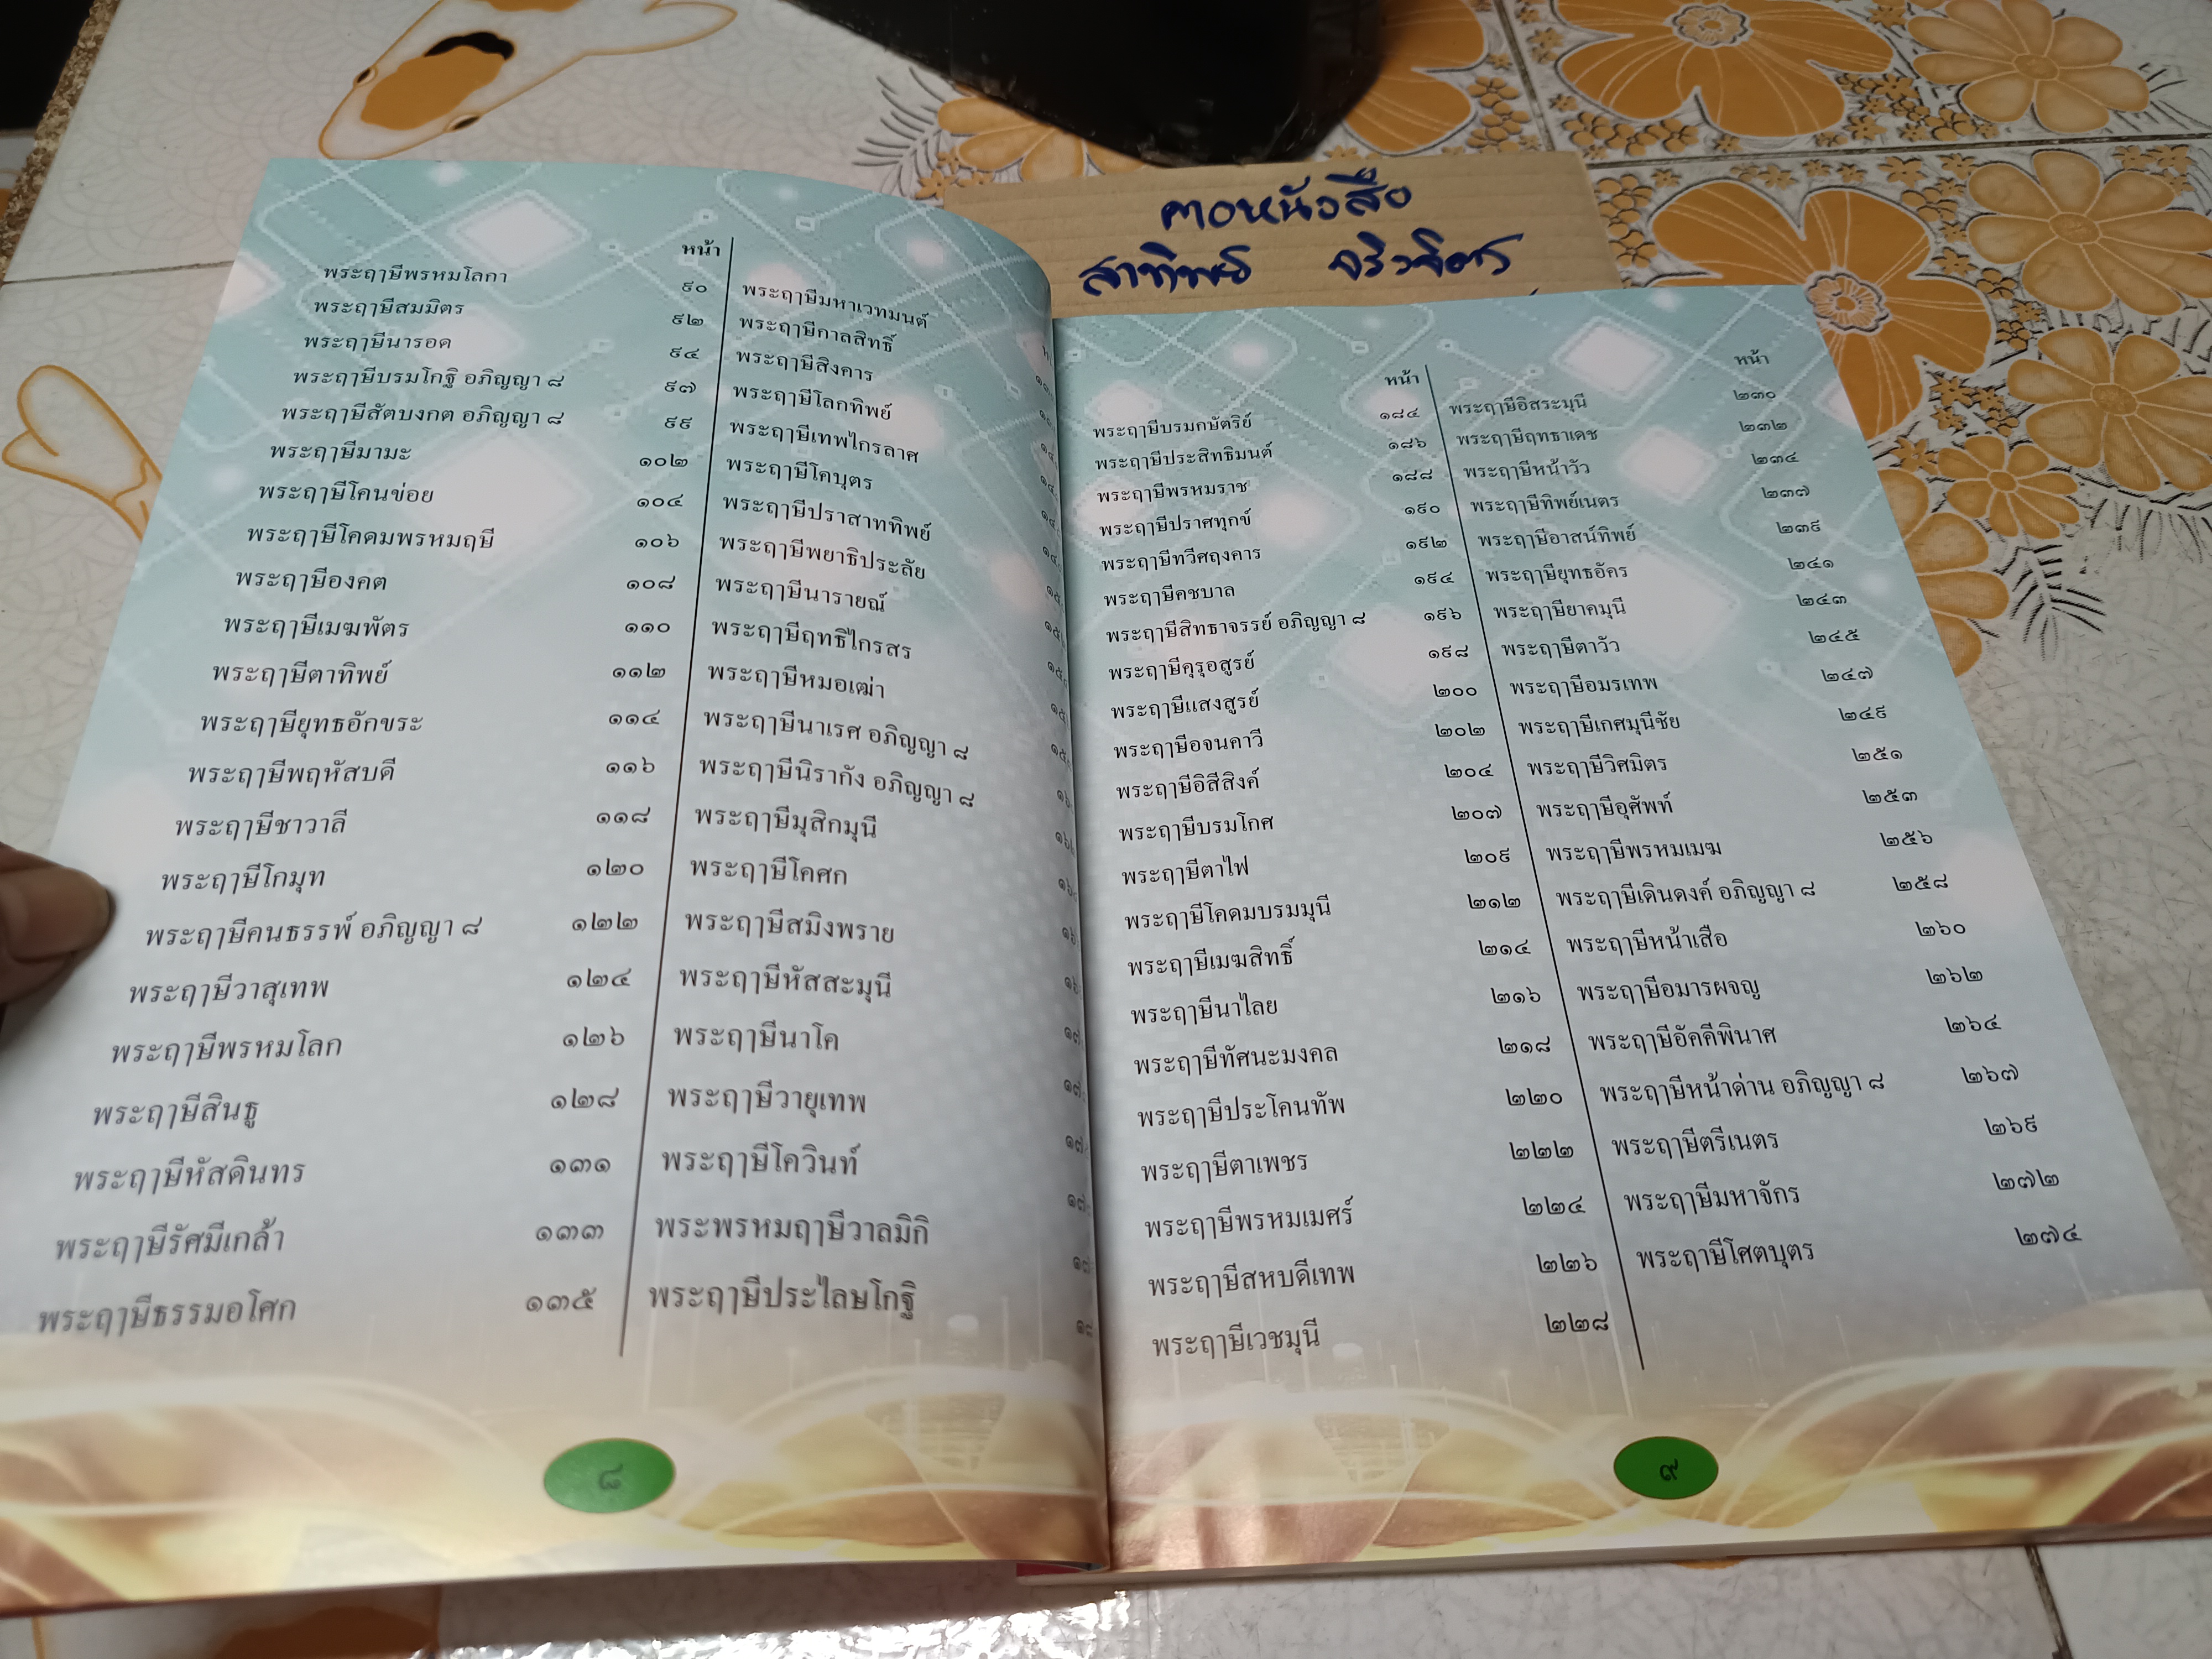 คอหนังสือ
หน้า
พระฤๅษีพรหมโลกา ๙๐
พระฤๅษีสมมิตร ๙๒
พระฤๅษีนารอด ๙๔
พระฤๅษีบรมโกฐิ อภิญญา ๘ ๙๗
พระฤๅษีสัตบงกต อภิญญา ๘ ๙๙
พระฤๅษีมามะ ๑๐๒
พระฤๅษีโคนข่อย ๑๐๔
พระฤๅษีโคดมพรหมฤษี ๑๐๖
พระฤๅษีองคต ๑๐๘
พระฤๅษีเมฆพัตร ๑๑๐
พระฤๅษีตาทิพย์ ๑๑๒
พระฤๅษียุทธอักขระ ๑๑๔
พระฤๅษีพฤหัสบดี ๑๑๖
พระฤๅษีชาวาลี ๑๑๘
พระฤๅษีโกมุท ๑๒๐
พระฤๅษีคนธรรพ์ อภิญญา ๘ ๑๒๒
พระฤๅษีวาสุเทพ ๑๒๔
พระฤๅษีพรหมโลก ๑๒๖
พระฤๅษีสินธู ๑๒๘
พระฤๅษีหัสดินทร ๑๓๑
พระฤๅษีรัศมีเกล้า ๑๓๓
พระฤๅษีธรรมอโศก ๑๓๕
พระฤๅษีมหาเวทมนต์
พระฤๅษีกาลสิทธิ์
พระฤๅษีสิงคาร
พระฤๅษีโลกทิพย์
พระฤๅษีเทพไกรลาศ
พระฤๅษีโคบุตร
พระฤๅษีปราสาททิพย์
พระฤๅษีพยาธิประลัย
พระฤๅษีนารายณ์
พระฤๅษีฤทธิไกรสร
พระฤๅษีหมอเฒ่า
พระฤๅษีนาเรศ อภิญญา ๘
พระฤๅษีนิรากัง อภิญญา ๘
พระฤๅษีมุสิกมุนี
พระฤๅษีโคศก
พระฤๅษีสมิงพราย
พระฤๅษีหัสสะมุนี
พระฤๅษีนาโค
พระฤๅษีวายุเทพ
พระฤๅษีโควินท์
พระพรหมฤๅษีวาลมิกิ
พระฤๅษีประไลษโกฐิ
๘
หน้า
พระฤๅษีบรมกษัตริย์ ๑๘๔
พระฤๅษีประสิทธิมนต์ ๑๘๖
พระฤๅษีพรหมราช ๑๘๘
พระฤๅษีปราศทุกข์ ๑๙๐
พระฤๅษีทวีศฤงคาร ๑๙๒
พระฤๅษีคชบาล ๑๙๔
พระฤๅษีสิทธาจรรย์ อภิญญา ๘ ๑๙๖
พระฤๅษีคุรุอสูรย์ ๑๙๘
พระฤๅษีแสงสูรย์ ๒๐๐
พระฤๅษีอจนคาวี ๒๐๒
พระฤๅษีอิสีสิงค์ ๒๐๔
พระฤๅษีบรมโกศ ๒๐๗
พระฤๅษีตาไฟ ๒๐๙
พระฤๅษีโคดมบรมมุนี ๒๑๒
พระฤๅษีเมฆสิทธิ์ ๒๑๔
พระฤๅษีนาไลย ๒๑๖
พระฤๅษีทัศนะมงคล ๒๑๘
พระฤๅษีประโคนทัพ ๒๒๐
พระฤๅษีตาเพชร ๒๒๒
พระฤๅษีพรหมเมศร์ ๒๒๔
พระฤๅษีสหบดีเทพ ๒๒๖
พระฤๅษีเวชมุนี ๒๒๘
หน้า
พระฤๅษีอิสระมุนี ๒๓๐
พระฤๅษีฤทธาเดช ๒๓๒
พระฤๅษีหน้าวัว ๒๓๔
พระฤๅษีทิพย์เนตร ๒๓๗
พระฤๅษีอาสน์ทิพย์ ๒๓๙
พระฤๅษียุทธอัคร ๒๔๑
พระฤๅษียาคมุนี ๒๔๓
พระฤๅษีตาวัว ๒๔๕
พระฤๅษีอมรเทพ ๒๔๗
พระฤๅษีเกศมุนีชัย ๒๔๙
พระฤๅษีวิศมิตร ๒๕๑
พระฤๅษีอุศัพท์ ๒๕๓
พระฤๅษีพรหมเมฆ ๒๕๖
พระฤๅษีเดินดงค์ อภิญญา ๘ ๒๕๘
พระฤๅษีหน้าเสือ ๒๖๐
พระฤๅษีอมารผจญ ๒๖๒
พระฤๅษีอัคคีพินาศ ๒๖๔
พระฤๅษีหน้าด่าน อภิญญา ๘ ๒๖๗
พระฤๅษีตรีเนตร ๒๖๙
พระฤๅษีมหาจักร ๒๗๒
พระฤๅษีโศตบุตร ๒๗๔
๙